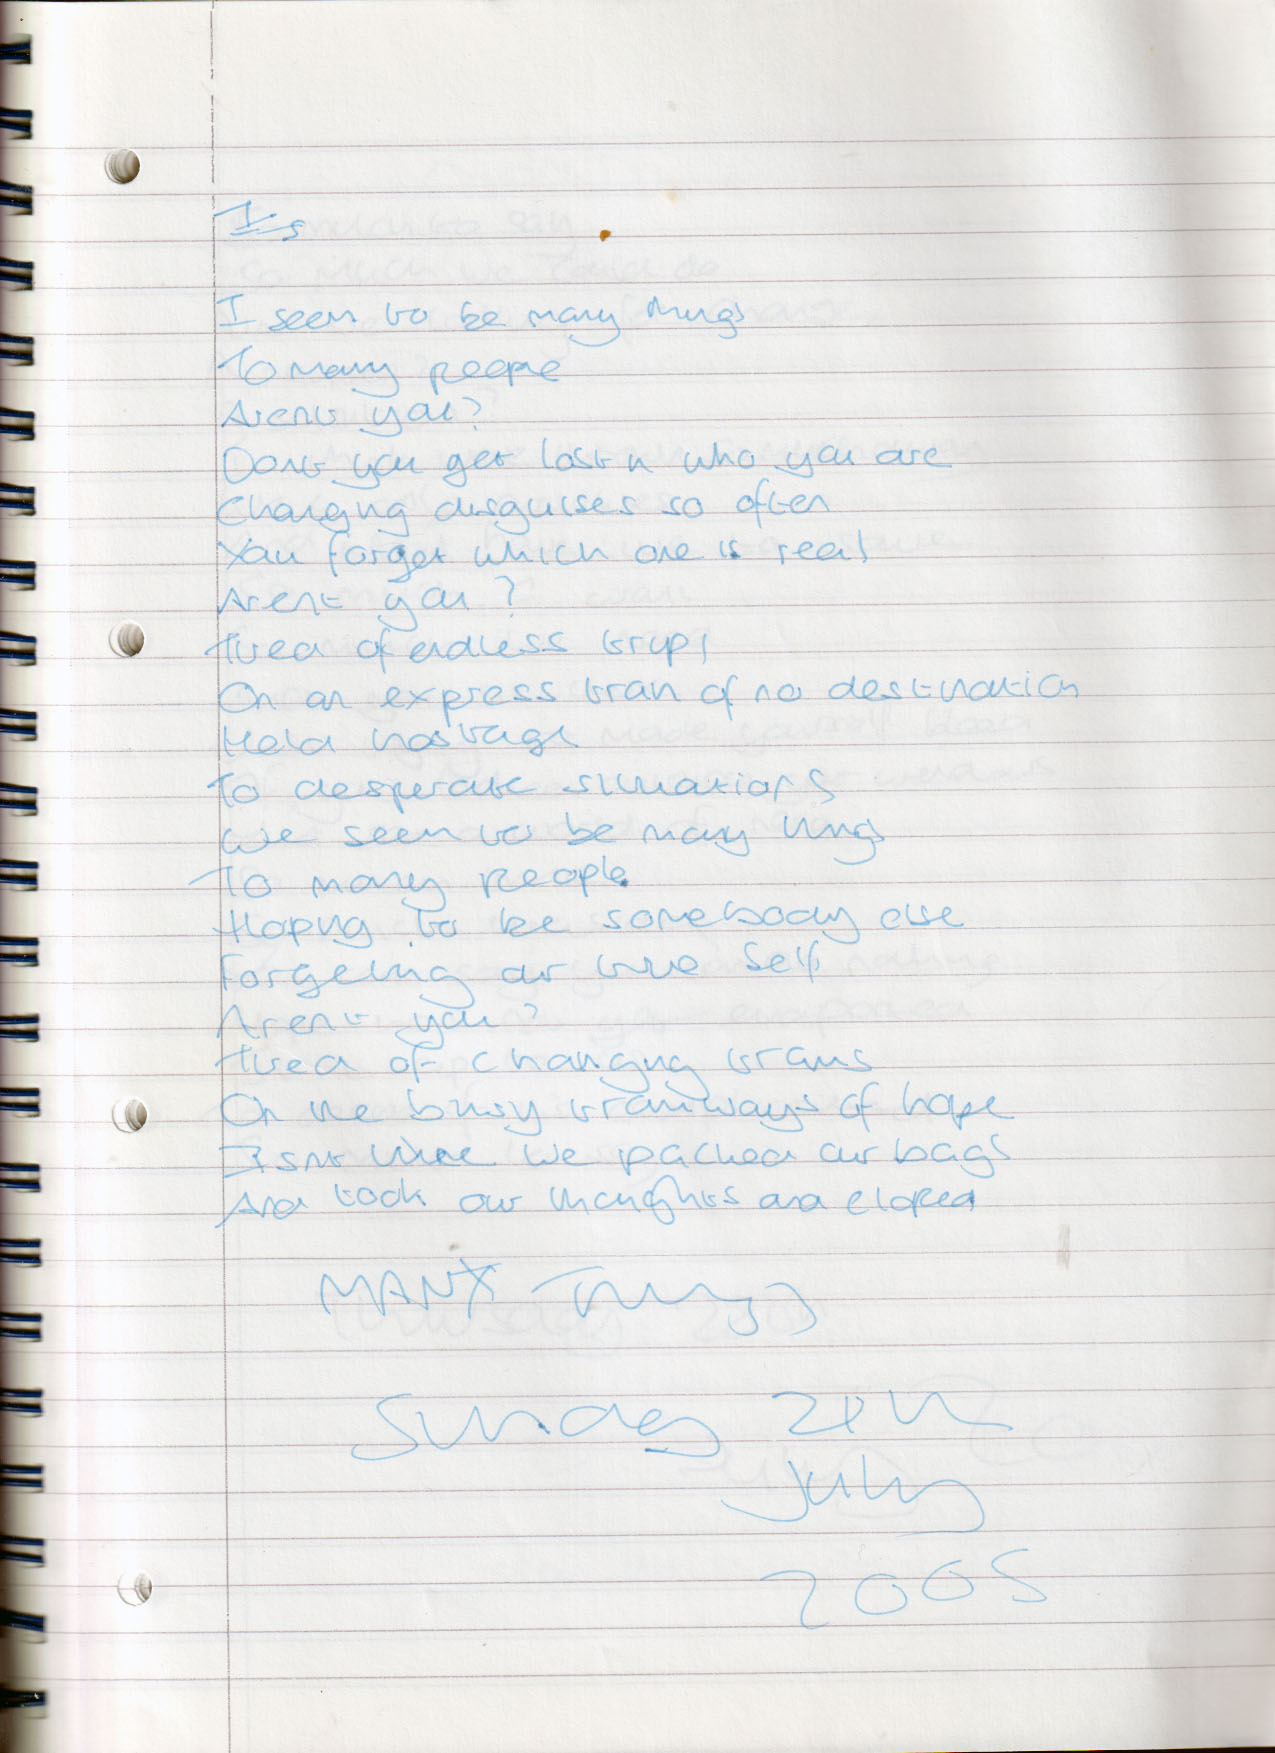 Is
I seem to be many things
To many people
Arent you?
Dont you get lost in who you are
Changing disguises so often
You forget which one is real
Arent you?
Tired of endless trips
On an express train of no destination
Held hostage
To desperate situations
We seem to be many things
To many people
Hoping to be somebody else
Forgetting our true self
Arent you?
Tired of changing trains
On the busy tramways of hope
Isnt time we packed our bags
And took our thoughts and eloped
MANY Things
Sunday
July
2005